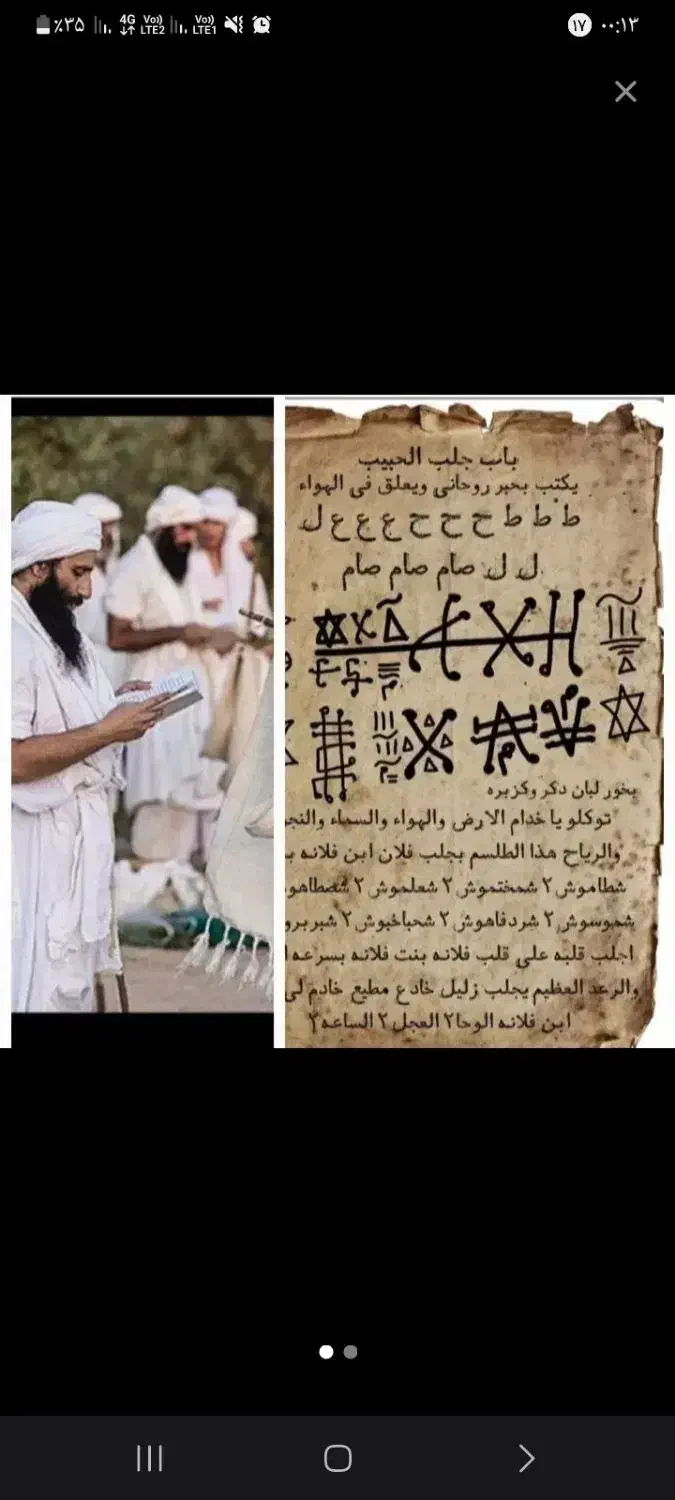 ٪۳۵ 4G Vo)) LTE2 Vo)) LTE1 ۱۷ ۰۰:۱۳
باب جلب الحبيب
يكتب بحبر روحانى ويعلق فى الهواء
ط ط ط ح ح ح ع ع ع ل
ل ل صام صام صام
بخور لبان دكر وكزبره
توكلو يا خدام الارض والهواء والسماء والنجـ
والرياح هذا الطلسم بجلب فلان ابن فلانه بـ
شطاموش ٢ شمختموش ٢ شعلموش ٢ شصطاهو
شموسوش ٢ شردفاهوش ٢ شحباخبوش ٢ شبربرو
اجلب قلبه على قلب فلانه بنت فلانه بسرعه ا
والرعد العظيم يجلب زليل خادع مطيع خادم لى
ابن فلانه الوحا٢ العجل ٢ الساعه ٢